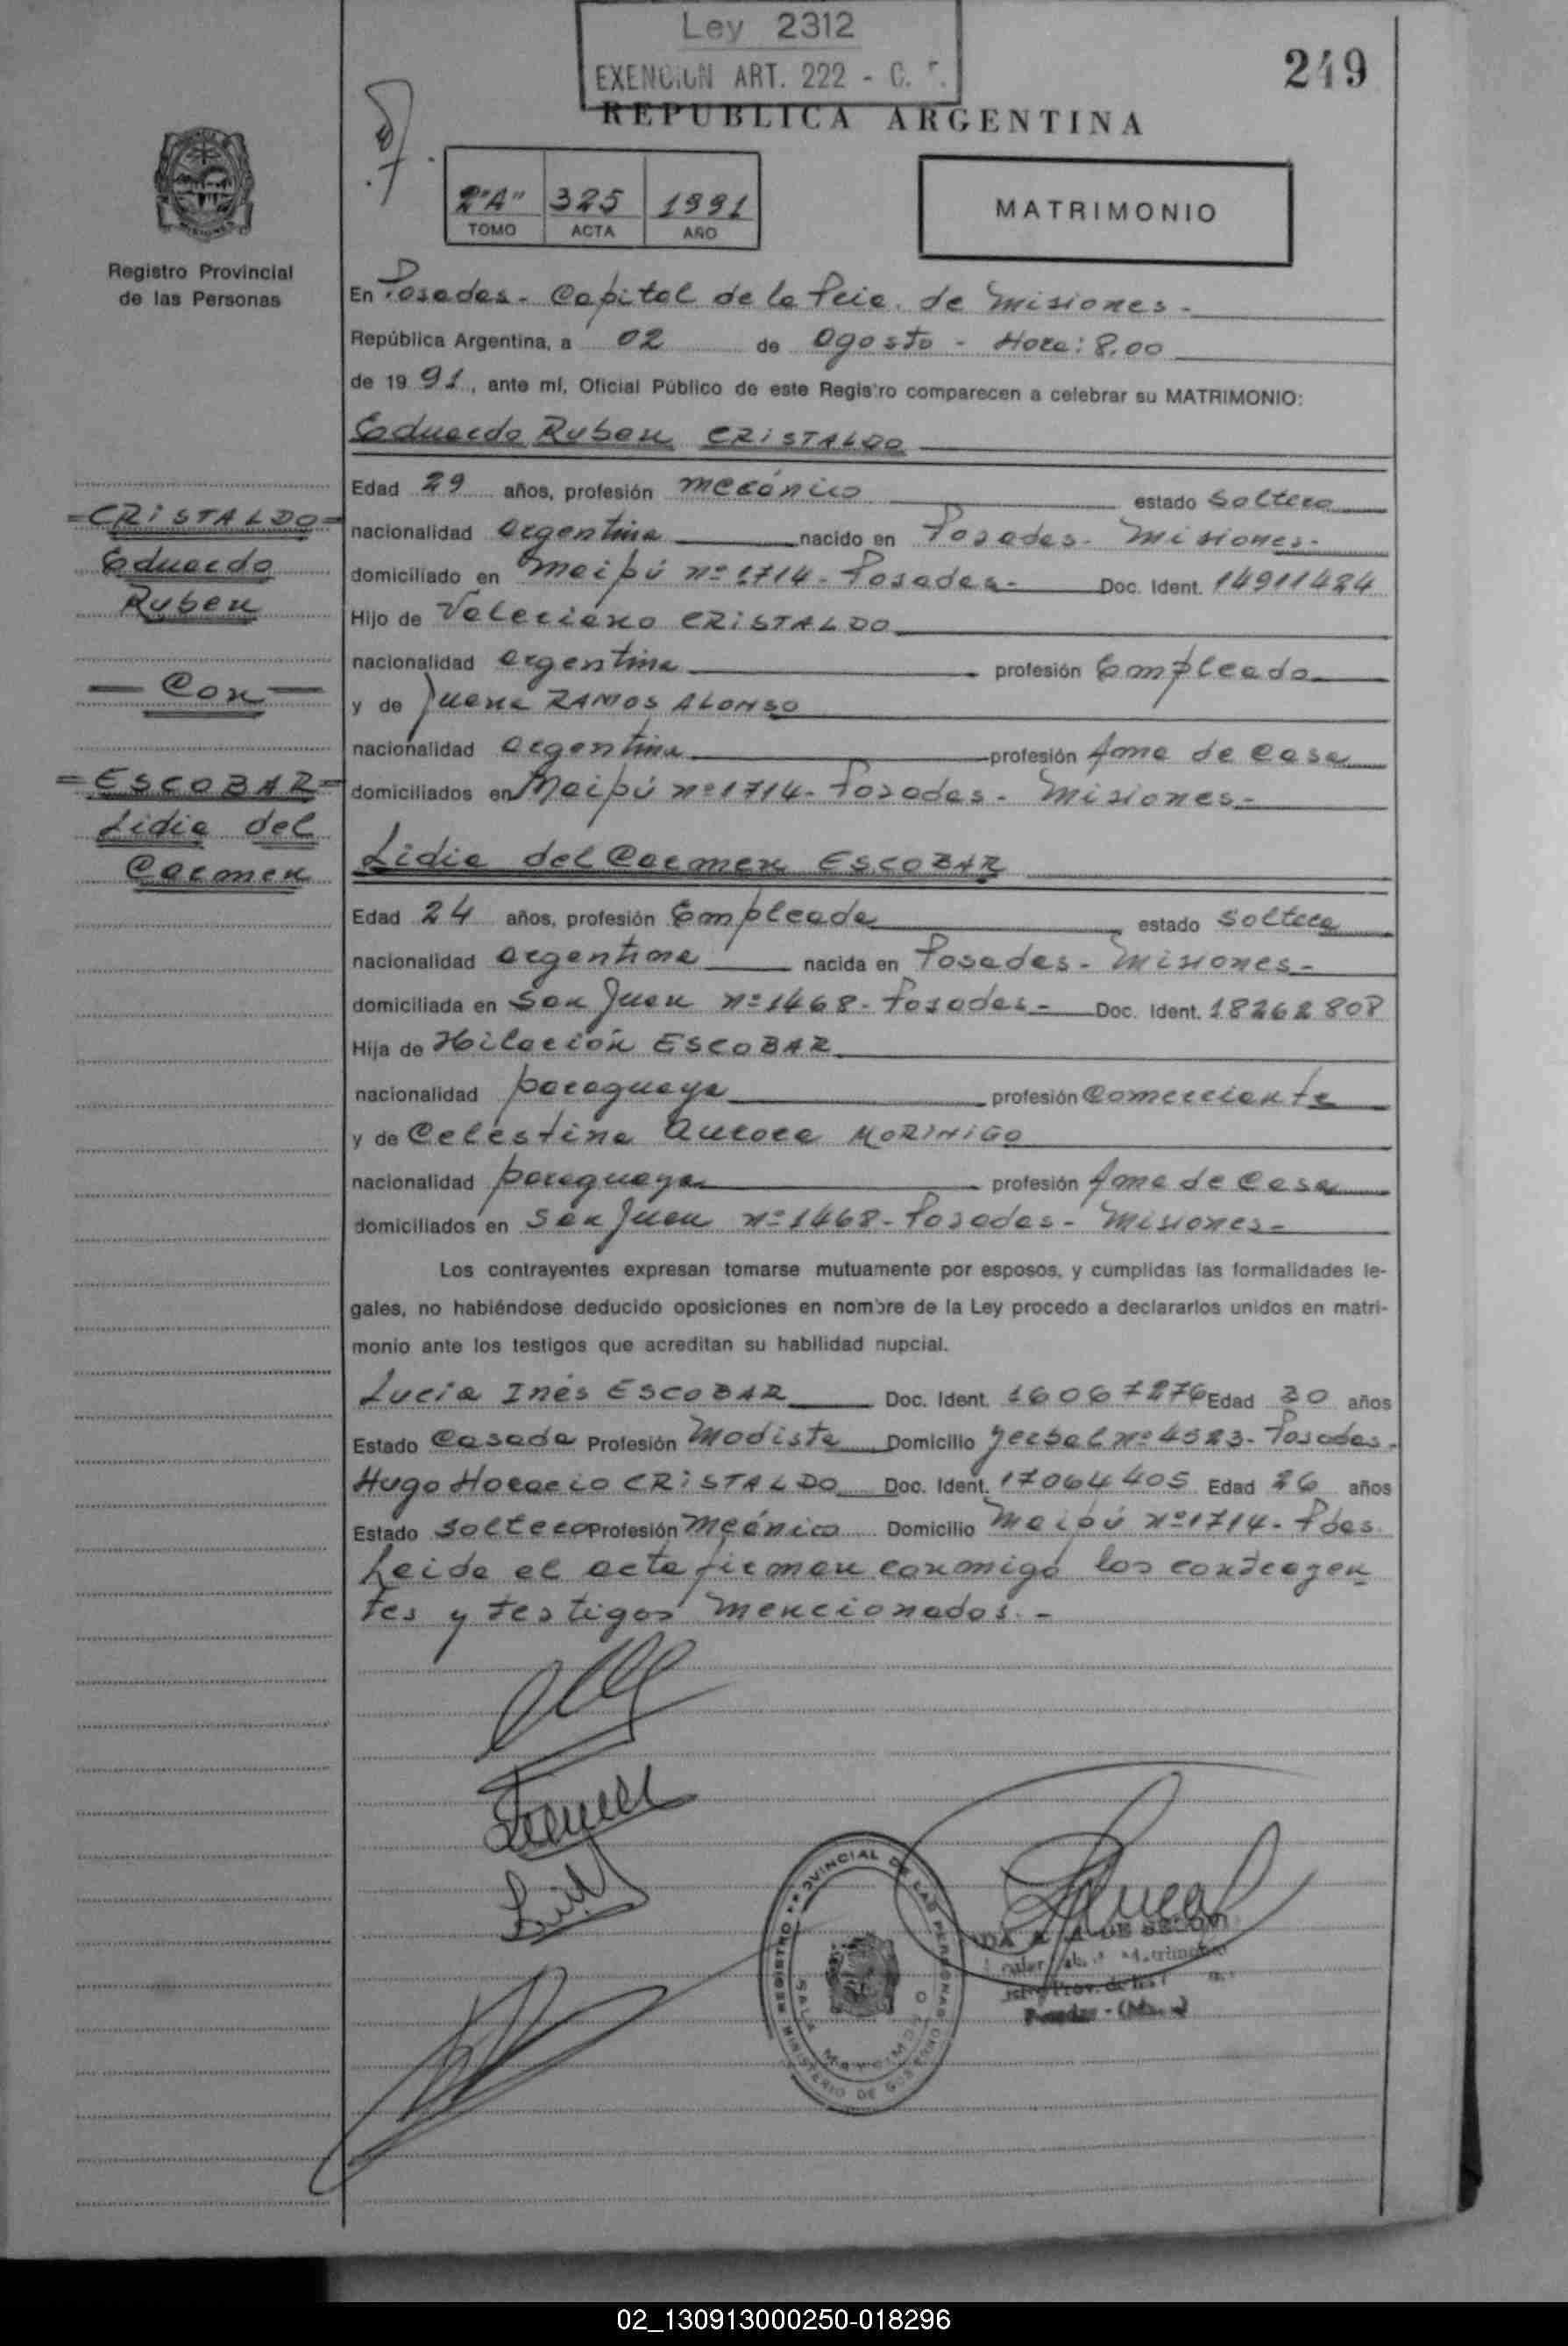 Ley 2312
EXENCION ART. 222 - C.
249
REPUBLICA ARGENTINA
2"A" 325 1991
TOMO ACTA AÑO
MATRIMONIO
Registro Provincial
de las Personas
En Posadas - Capital de la Pcia. de Misiones -
República Argentina, a 02 de Agosto - Hora: 8.00
de 1991, ante mí, Oficial Público de este Registro comparecen a celebrar su MATRIMONIO:
Eduardo Ruben CRISTALDO
Edad 29 años, profesión mecánico estado Soltero
nacionalidad argentina nacido en Posadas - Misiones -
domiciliado en Maipú nº 1714 - Posadas - Doc. Ident. 14911424
Hijo de Valeriano CRISTALDO
nacionalidad argentina profesión Empleado
y de Juana RAMOS ALONSO
nacionalidad argentina profesión Ama de Casa
domiciliados en Maipú nº 1714 - Posadas - Misiones -
= CRISTALDO =
Eduardo
Ruben
— Con —
= ESCOBAR =
Lidia del
Carmen
Lidia del Carmen ESCOBAR
Edad 24 años, profesión Empleada estado Soltera
nacionalidad argentina nacida en Posadas - Misiones -
domiciliada en San Juan nº 1468 - Posadas - Doc. Ident. 18262808
Hija de Hilarión ESCOBAR
nacionalidad paraguaya profesión Comerciante
y de Celestina Aurora MORINIGO
nacionalidad paraguaya profesión Ama de Casa
domiciliados en San Juan nº 1468 - Posadas - Misiones -
Los contrayentes expresan tomarse mutuamente por esposos, y cumplidas las formalidades le-
gales, no habiéndose deducido oposiciones en nombre de la Ley procedo a declararlos unidos en matri-
monio ante los testigos que acreditan su habilidad nupcial.
Lucía Inés ESCOBAR Doc. Ident. 16067276 Edad 30 años
Estado Casada Profesión Modista Domicilio Yerbal nº 4523 - Posadas -
Hugo Horacio CRISTALDO Doc. Ident. 17064405 Edad 26 años
Estado Soltero Profesión Meánico Domicilio Maipú nº 1714 - Pdas.
Leida el acta firman conmigo los contrayen
tes y testigos mencionados. -
REGISTRO PROVINCIAL DE LAS PERSONAS
SALA MATRIMONIO
MINISTERIO DE GOBIERNO
02_130913000250-018296